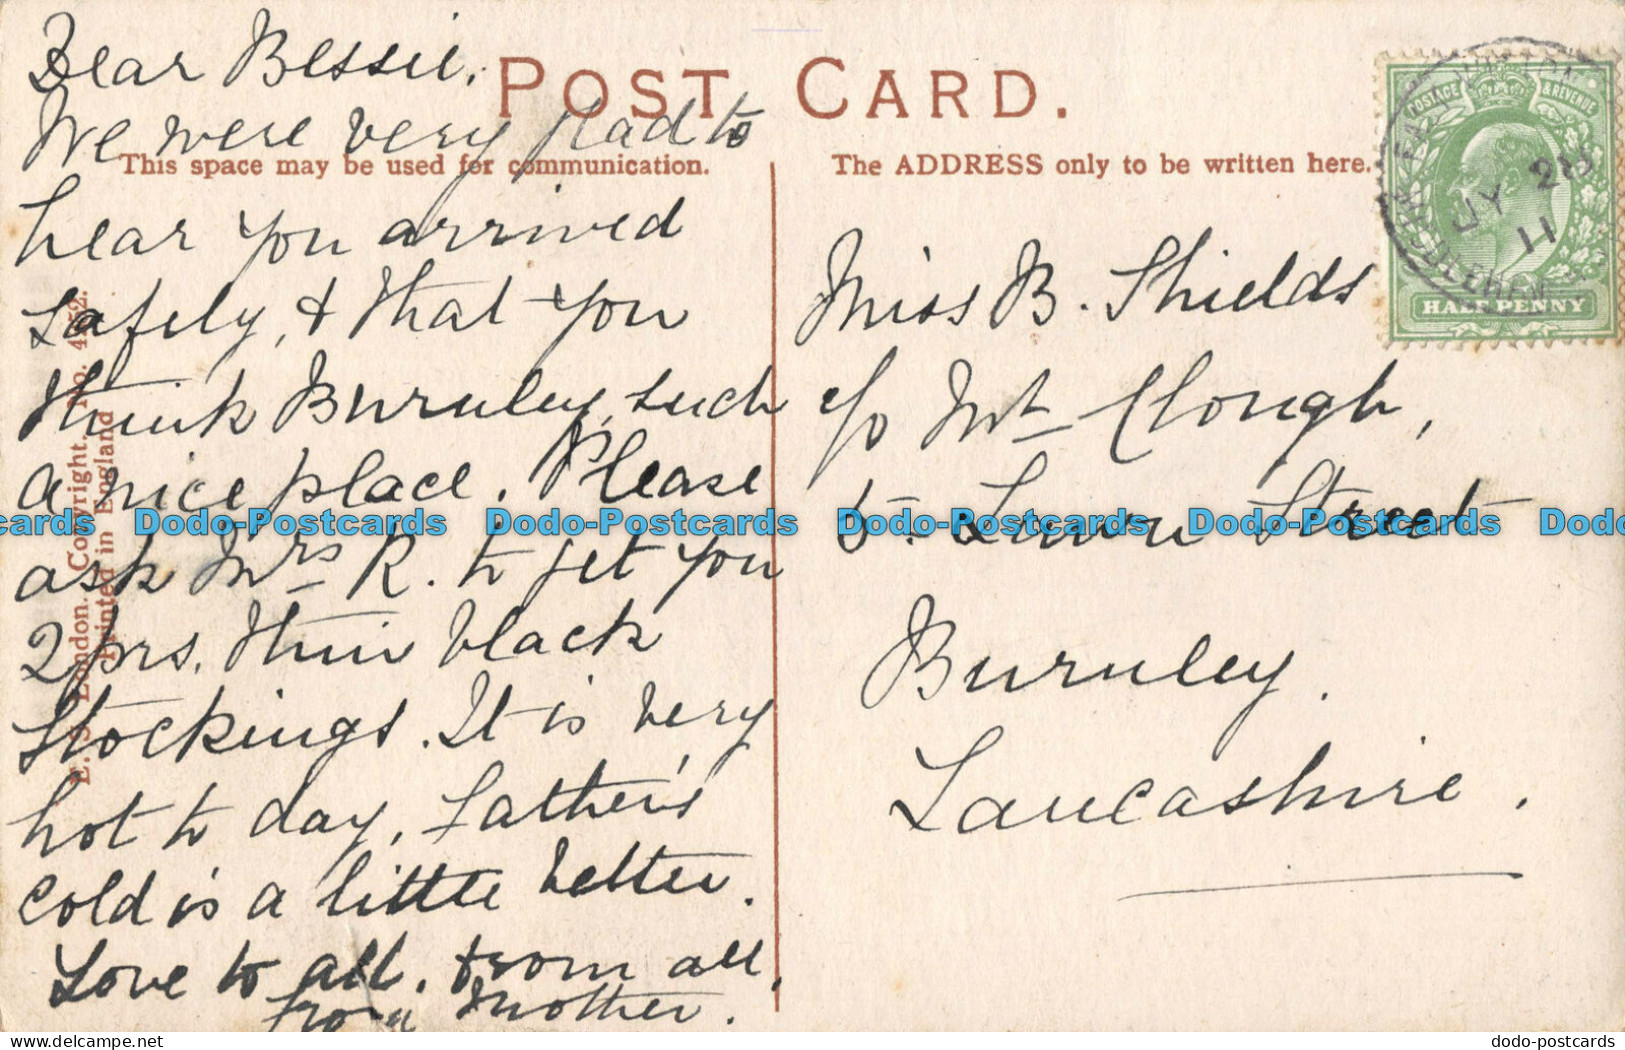 Dear Bessie.
We were very glad to
hear you arrived
safely, & that you
think Burnley, such
a nice place. Please
ask Mrs R. to get you
2 prs. thin black
stockings. It is very
hot to day, Father's
cold is a little better.
Love to all. from all.
from Mother.
POST CARD.
This space may be used for communication.
The ADDRESS only to be written here.
E. S. London. Copyright. No. 4552.
Printed in England
Miss B. Shields
c/o Mrs Clough,
5. Lawn Street
Burnley.
Lancashire.
POSTAGE & REVENUE
HALF PENNY
JY 28
11
Dodo-Postcards Dodo-Postcards Dodo-Postcards Dodo-Postcards
My-Postcard.com
dodo-postcards